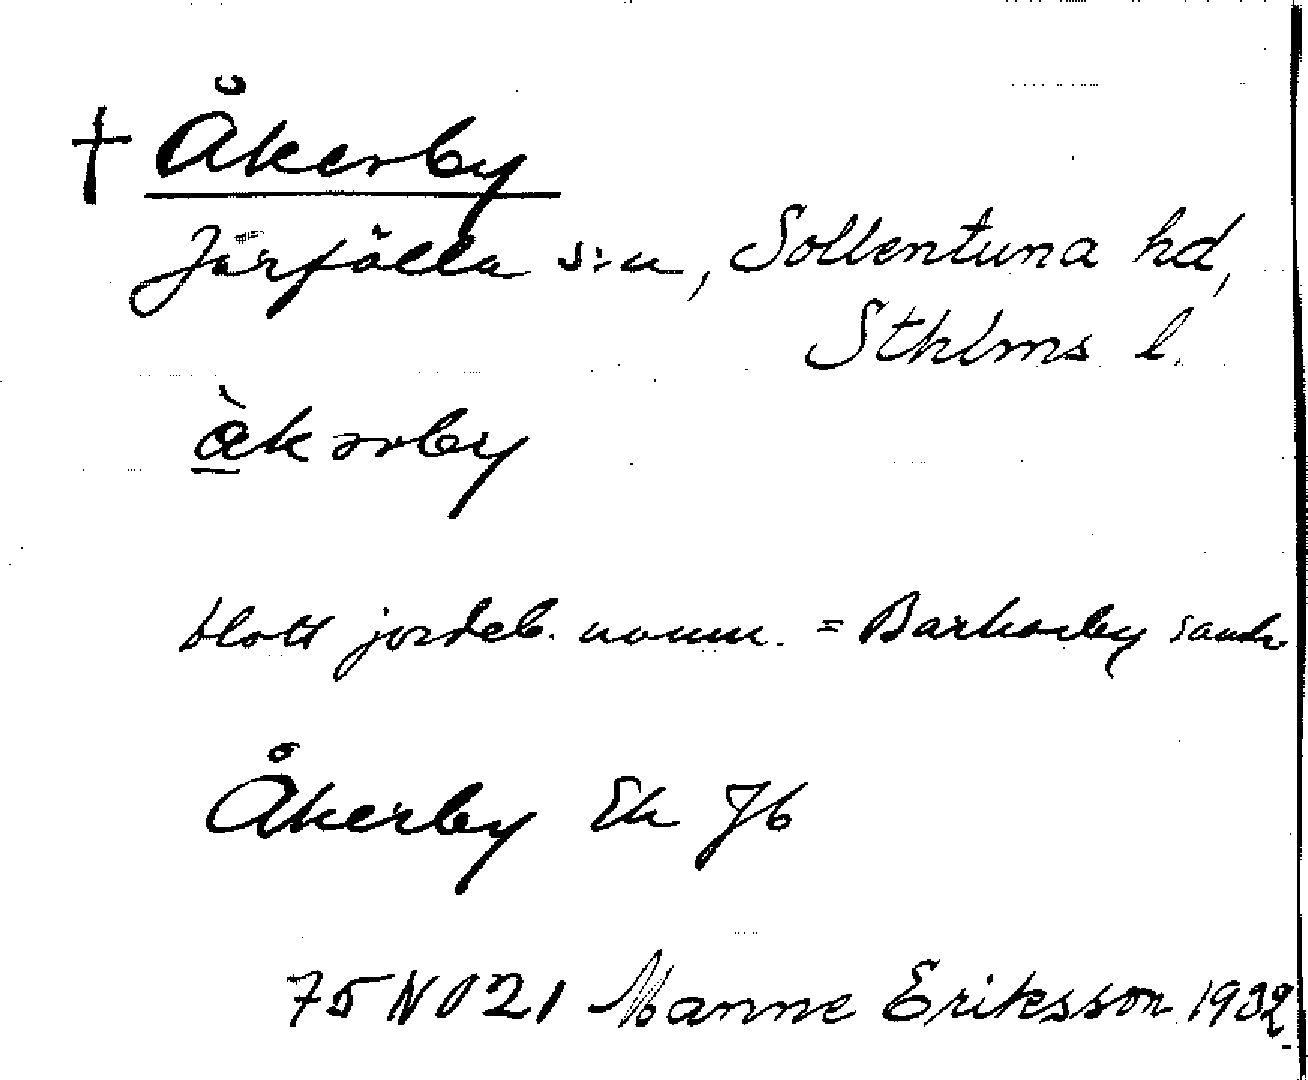 † Åkerby
Järfälla s:n, Sollentuna hd,
Sthlms l.
åkərby
blott jordeb. namn. = Barkarby
Åkerby Ek Jb
75 NO 21 Manne Eriksson 1932